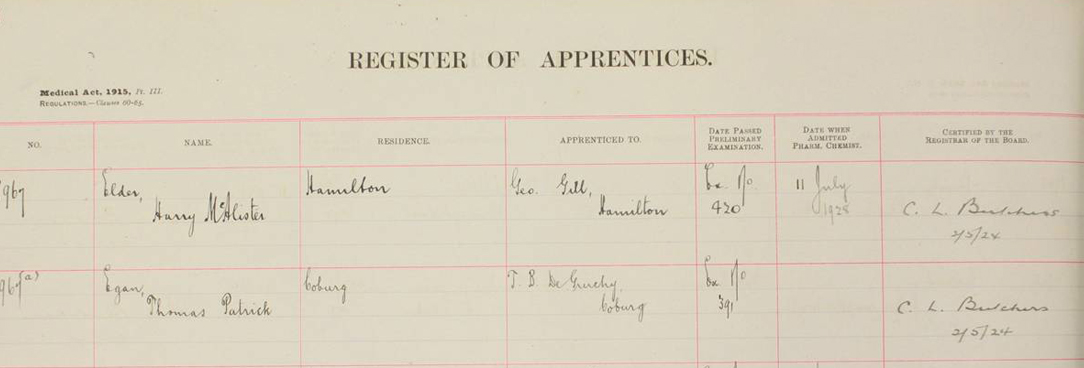 REGISTER OF APPRENTICES.
Medical Act, 1915, Pt. III.
REGULATIONS.—Clauses 60-65.
NO.
NAME.
RESIDENCE.
APPRENTICED TO.
DATE PASSED
PRELIMINARY
EXAMINATION.
DATE WHEN
ADMITTED
PHARM. CHEMIST.
CERTIFIED BY THE
REGISTRAR OF THE BOARD.
967
Elder,
Harry McAlister
Hamilton
Geo. Gill,
Hamilton
Ex No.
420
11 July
1928
C. L. Butchers
2/5/24
967(a)
Egan,
Thomas Patrick
Coburg
T. B. De Gruchy,
Coburg
Ex No
391
C. L. Butchers
2/5/24